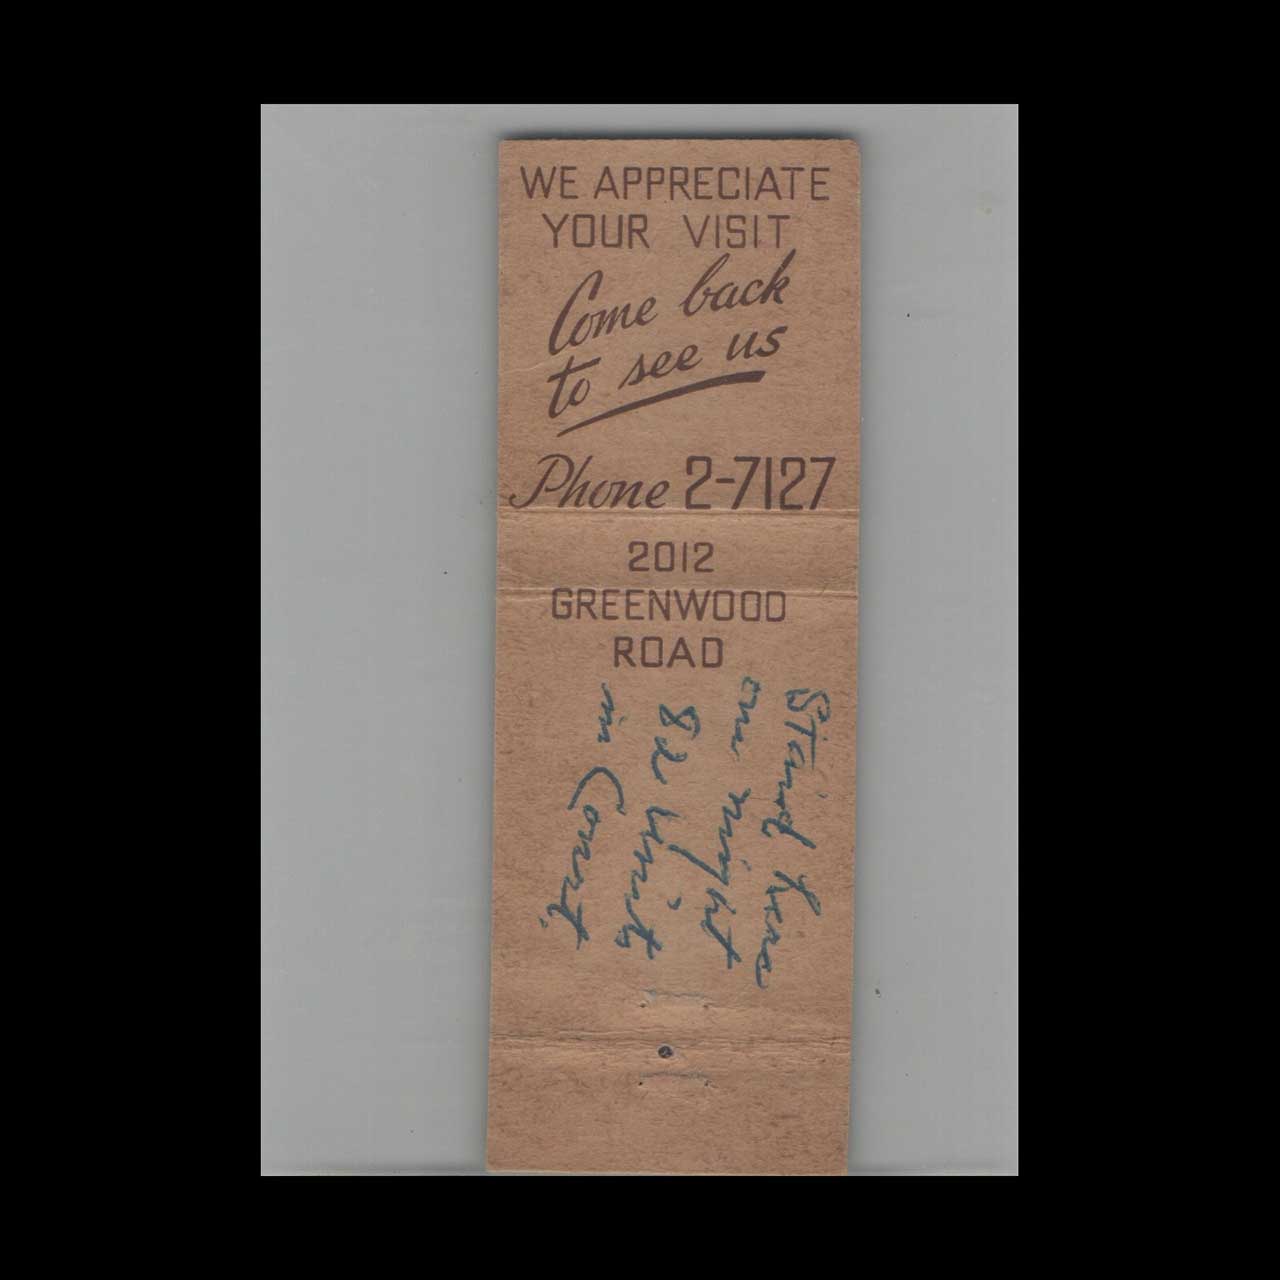 WE APPRECIATE
YOUR VISIT
Come back
to see us
Phone 2-7127
2012
GREENWOOD
ROAD
Staid here
one night
82 Units
in Court.